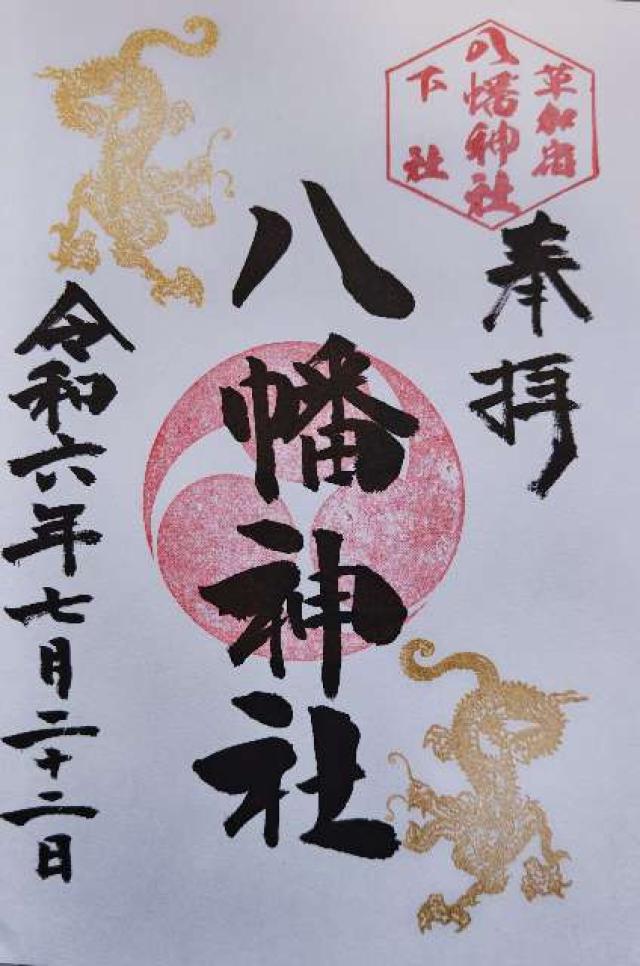 草加宿
八幡神社
下社
奉拝
八幡神社
令和六年七月二十二日